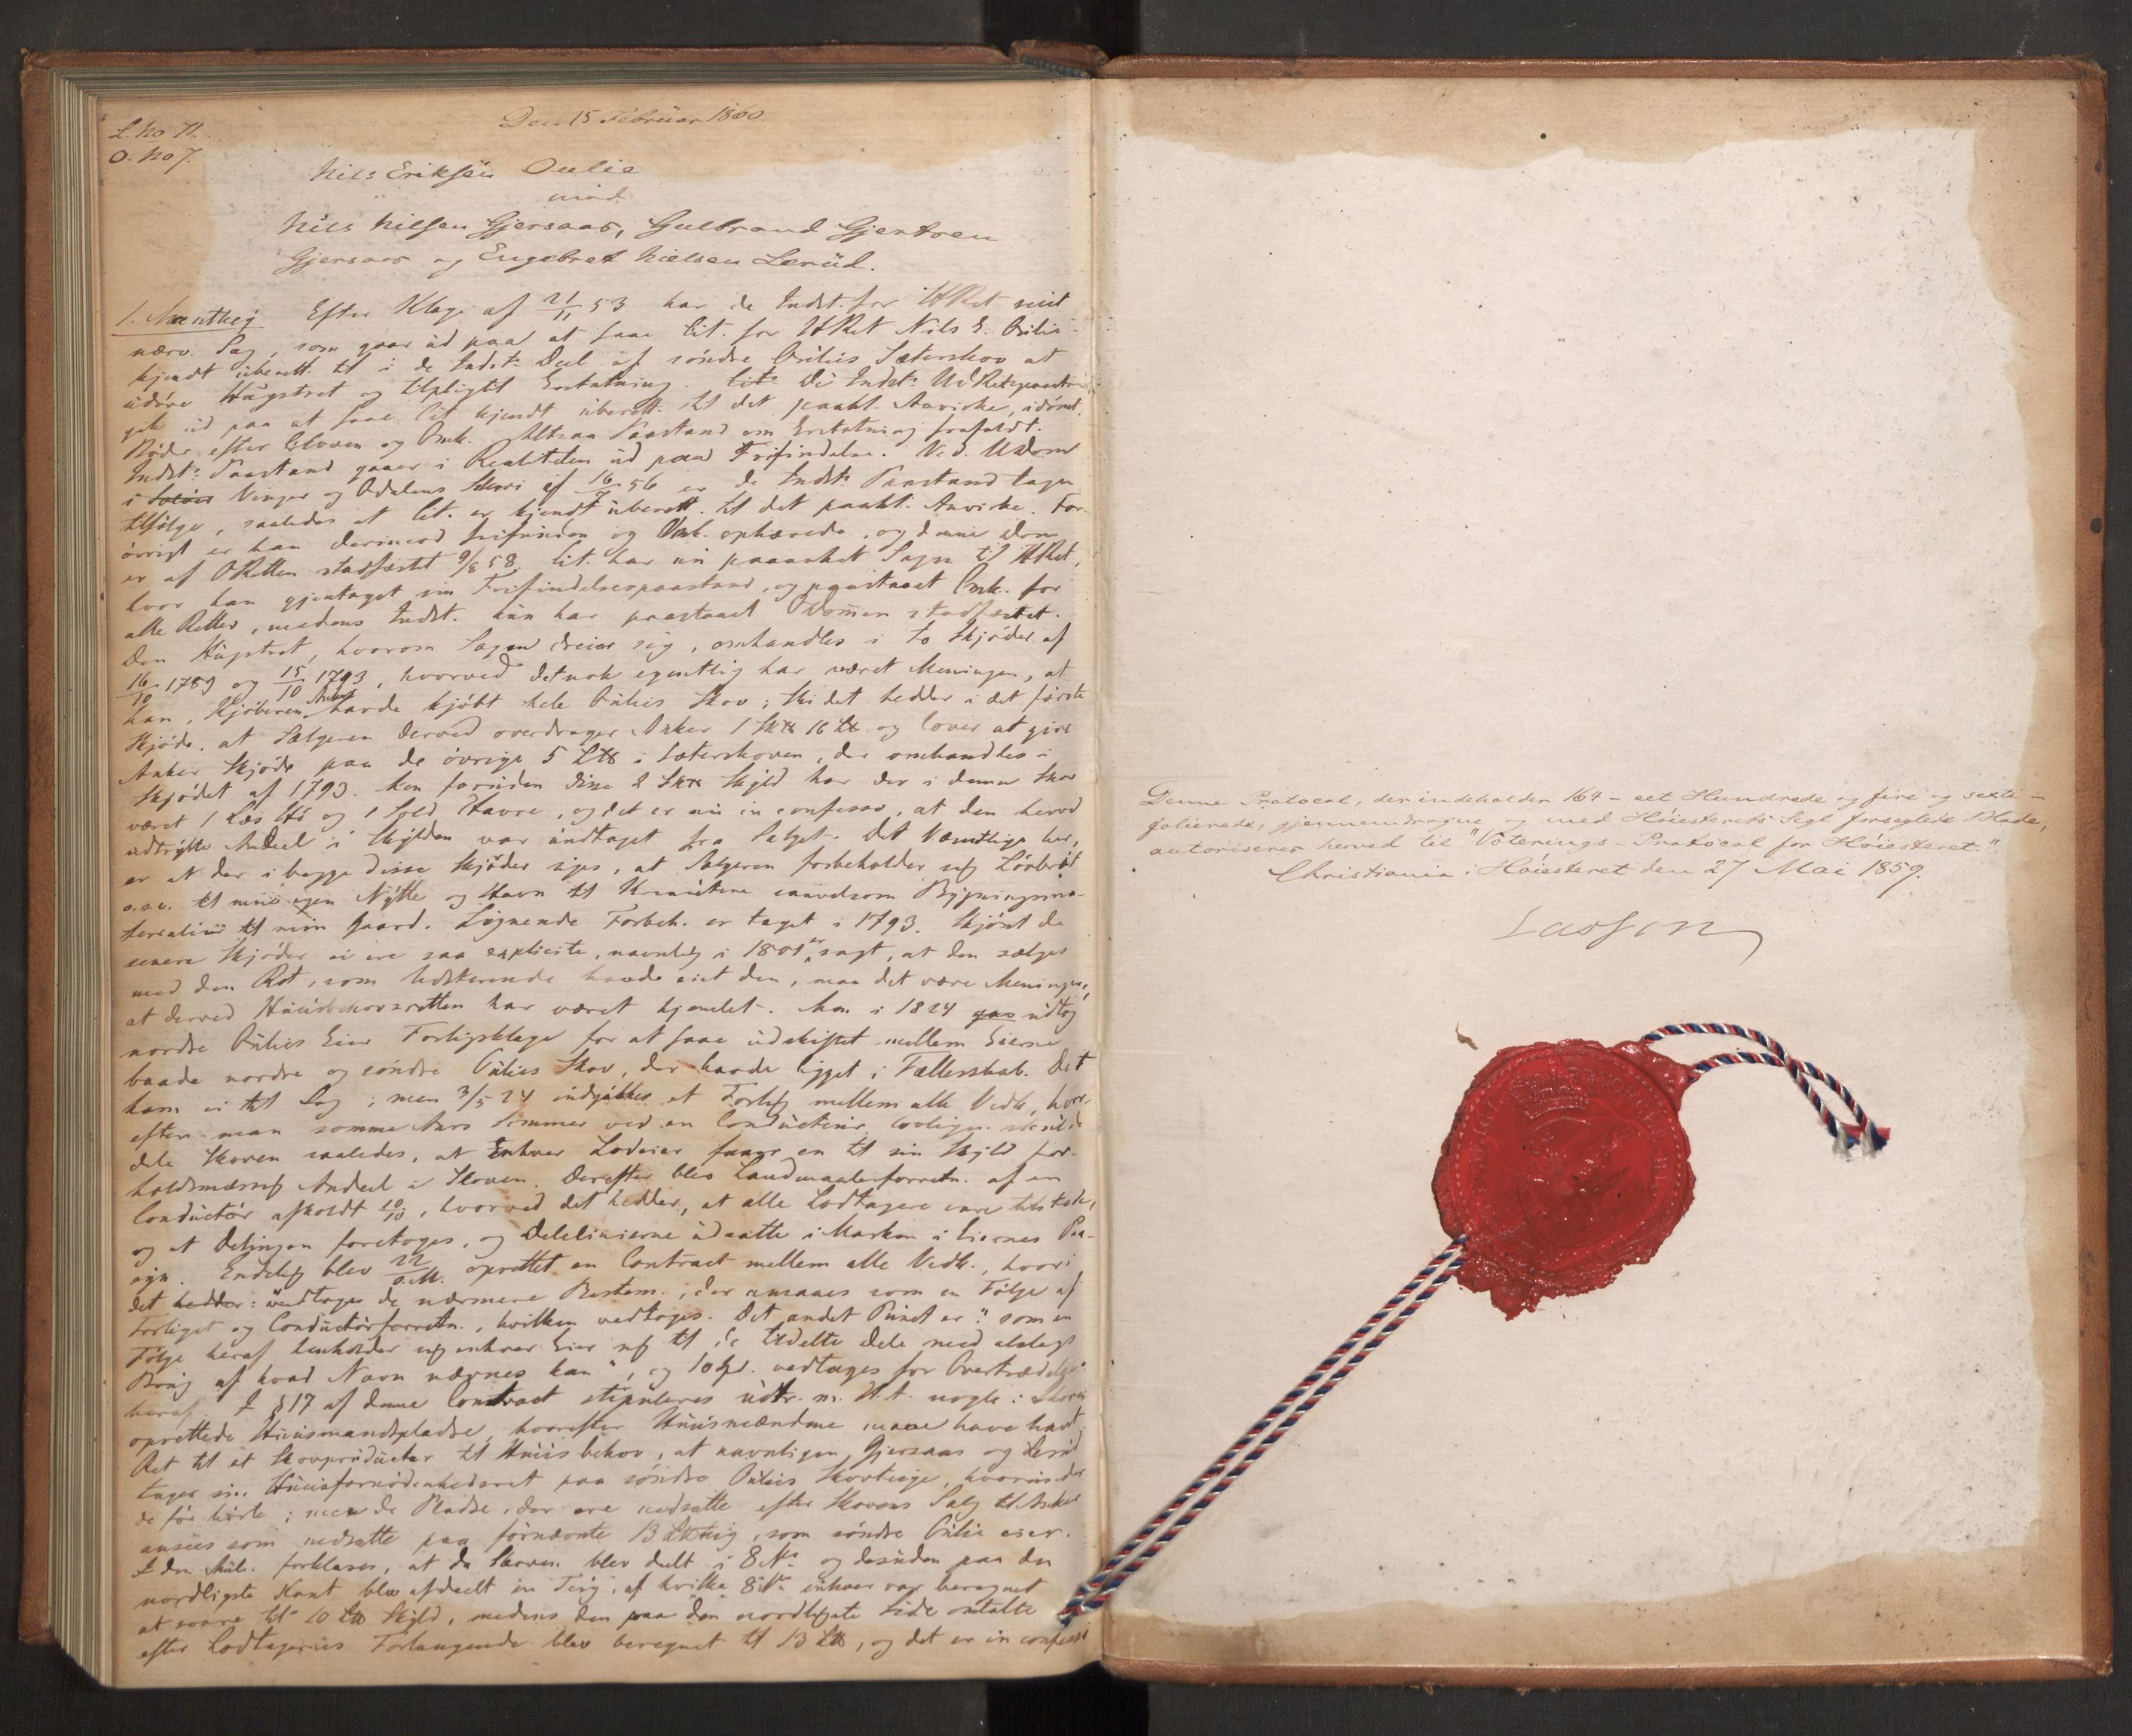 L. No 71.
O. No 7.
Den 15 Februar 1860.
Nils Eriksen Oulie
mod
Nils Nilsen Gjersaas, Gulbrand Gjertsen
Gjersaas og Engebret Nielsen Lerüd.
1. Manthey Efter Klage af 21/11 53 har de Indst. for HRet
nærv. Sag, som gaar ud paa at faae Cit. for HRet Nils E. Oulie
kjendt uberett. til i de Indst. Deel af söndre Oulies Sæterskov at
udöve Hugstret og tilpligtet Erstatning. De Indst.
gik ud paa at faae Cit. kjendt uberett. til det paakl. Anvirke, idömt
Böder efter Loven og Omk. Altsaa Paastand om Erstatning frafaldt.
Indst. Paastand gaaer i Realiteten ud paa Frifindelse. Ved UDom
i Vinger og Odalens Skrivri af 16/7 56 er de Indst. Paastand tagen
tilfölge, saaledes at Cit. er kjendt uberett. til det paakl. Anvirke. For-
övrigt er han derimod frifunden og Omk. ophævede, og denne Dom
er af ORetten stadfæstet 9/8 58. Cit. har nu paaanket Sagen til HRet,
hvor han gjentaget sin Frifindelsespaastand, og paastaaet Omk. for
alle Retter, medens Indst. kun har paastaaet Dommen stadfæstet.
Den Hugstret, hvorom Sagen dreier sig, omhandles i to Skjöder af
16/10 1789 og 15/10 1793, hvorved det nok egentlig har været Meningen, at
han, Kjöberen Anker havde kjöbt hele Oulies Skov; thi det hedder i det förste
Skjöde, at Sælgeren derved overdrager Anker 1 Sk℔ 16 L℔ og lover at give
Anker Skjöde paa de övrige 5 L℔ i Sæterskoven, der omhandles i
Skjödet af 1793. Men foruden disse 2 Sk℔ Skyld har der i denne Skov
været 1 Læs Hö og 1 Sold Havre, og det er nu in confesso, at den herved
udtrykte Andeel i Skylden var undtaget fra Salget. Det Væsentlige her,
er at der i begge disse Skjöder siges, at Sælgeren forbeholder sig
o.s.v. til min egen Nytte og Gavn til Kreaturene saavelsom Bygningsma-
terialier til min Gaard. Lignende Forbeh. er taget i 1793. Skjönt de
senere Skjöder ei ere saa explicite, navnlig i 1801 er sagt, at den sælges
med den Ret, som Udstederende havde eiet den, maa det være Meningen,
at derved Huusbehovsretten har været hjemlet. Men i 1824 udtog
nordre Oulies Eier Forligsklage for at faae udskiftet mellem Eierne
baade nordre og söndre Oulies Skov, der havde ligget i Fællesskab. Det
kom ei til Sag; men 3/5 24 indgikkes et Forlig mellem alle Vedk., hvor-
efter man samme Aars Sommer ved en Conducteur skulde
dele Skoven saaledes, at Enhver Lodeier faaer en til sin Skyld for-
holdsmæssig Andeel i Skoven. Derefter blev Landmaalerforretn. af en
Conducteur afholdt 10/10, hvorved det hedder, at alle Lodtagere vare tilstede,
og at Delingen foretoges, og Delelinierne udsatte i Marken i Eiernes Paa-
syn. Endelig blev 22/s.M. oprettet en Contract mellem alle Vedk., hvori
det hedder: vedtages de nærmere Bestem., der ansaaes som en Fölge af
Forliget og Conducteurforretn., hvilken vedtoges. Det andet Punct er: "som en
Fölge heraf henholder sig enhver Eier sig til de Uddelte Dele med alslags
Brug af hvad Navn nævnes kan", og 10 Spd. vedtages for Overtrædelse
heraf. I § 17 af denne Contract stipuleres udtr. m. H.t. nogle i Skoven
oprettede Huusmandspladse, hvorefter Huusmændene maae have havt
Ret til at Skovproducter til Huus behov, at navnligen Gjersaas og Lerud
tager sin Huusfornödenhedsret paa söndre Oulies Skovteige, hvorunder
de för hörte; men de Pladse, der ere nedsatte efter Skovens Salg til Anker
ansees som nedsatte paa förnævnte 13 , som söndre Oulie eier.
I den forklares, at da Skoven blev deelt i 8 No og desuden paa den
nordligste Kant blev afdeelt en Teig, af hvilke 8 No enhver var beregnet
at svare til 10 L℔ Skyld, medens den paa den nordligste Side omtalte
efter Lodtagernes Forlangende blev beregnet til 13 L℔, og det er in confesso
Denne Protocol, der indeholder 164 - eet Hundrede og fire og sexti -
folierede, gjennemdragne og med Höiesterets Segl forseglede Blade,
autoriseres herved til "Voterings-Protocol for Höiesteret."
Christiania i Höiesteret den 27 Mai 1859.
Lasson